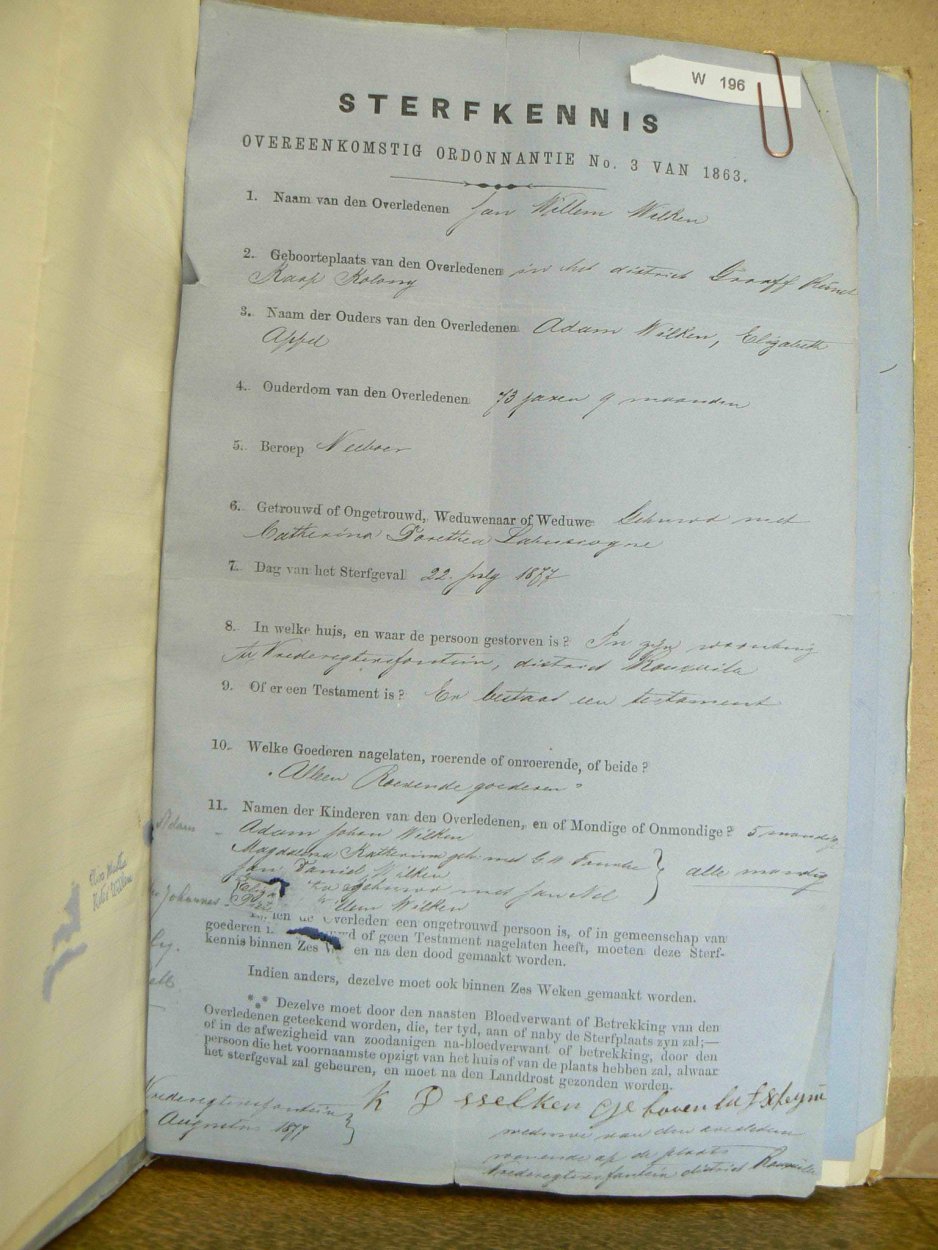 W 196
STERFKENNIS
OVEREENKOMSTIG ORDONNANTIE No. 3 VAN 1863.
1. Naam van den Overledenen Jan Willem Wilken
2. Geboorteplaats van den Overledenen in het district Graaff Reinet
Kaap Kolony
3. Naam der Ouders van den Overledenen Adam Wilken, Elizabeth
Appel
4. Ouderdom van den Overledenen 73 jaren 9 maanden
5. Beroep Veeboer
6. Getrouwd of Ongetrouwd, Weduwenaar of Weduwe Gehuwd met
Catherina Dorethea Labuscagne
7. Dag van het Sterfgeval 22 july 1877
8. In welke huis, en waar de persoon gestorven is? In zyn woonhuis
te Vrederegtersfontein, district Rouxville
9. Of er een Testament is? Er bestaat een testament
10. Welke Goederen nagelaten, roerende of onroerende, of beide?
"Alleen Roerende goederen"
11. Namen der Kinderen van den Overledenen, en of Mondige of Onmondige? 5 mondig
Adam
Adam Johan Wilken
Magdalena Katherina geh met C H
Jan Daniel Wilken
alle mondig
gehuwd met Jan Nel
Johannes
Willem Wilken
Indien de Overleden een ongetrouwd persoon is, of in gemeenschap van
goederen getrouwd of geen Testament nagelaten heeft, moeten deze Sterf-
kennis binnen Zes Weken en na den dood gemaakt worden.
Indien anders, dezelve moet ook binnen Zes Weken gemaakt worden.
*** Dezelve moet door den naasten Bloedverwant of Betrekking van den
Overledenen geteekend worden, die, ter tyd, aan of naby de Sterfplaats zyn zal;—
of in de afwezigheid van zoodanigen na-bloedverwant of betrekking, door den
persoon die het voornaamste opzigt van het huis of van de plaats hebben zal, alwaar
het sterfgeval zal gebeuren, en moet na den Landdrost gezonden worden.
Vrederegtersfontein
Augustus 1877
geboven
weduwe van den overledene
wonende op de plaats
Vrederegtersfontein district Rouxville